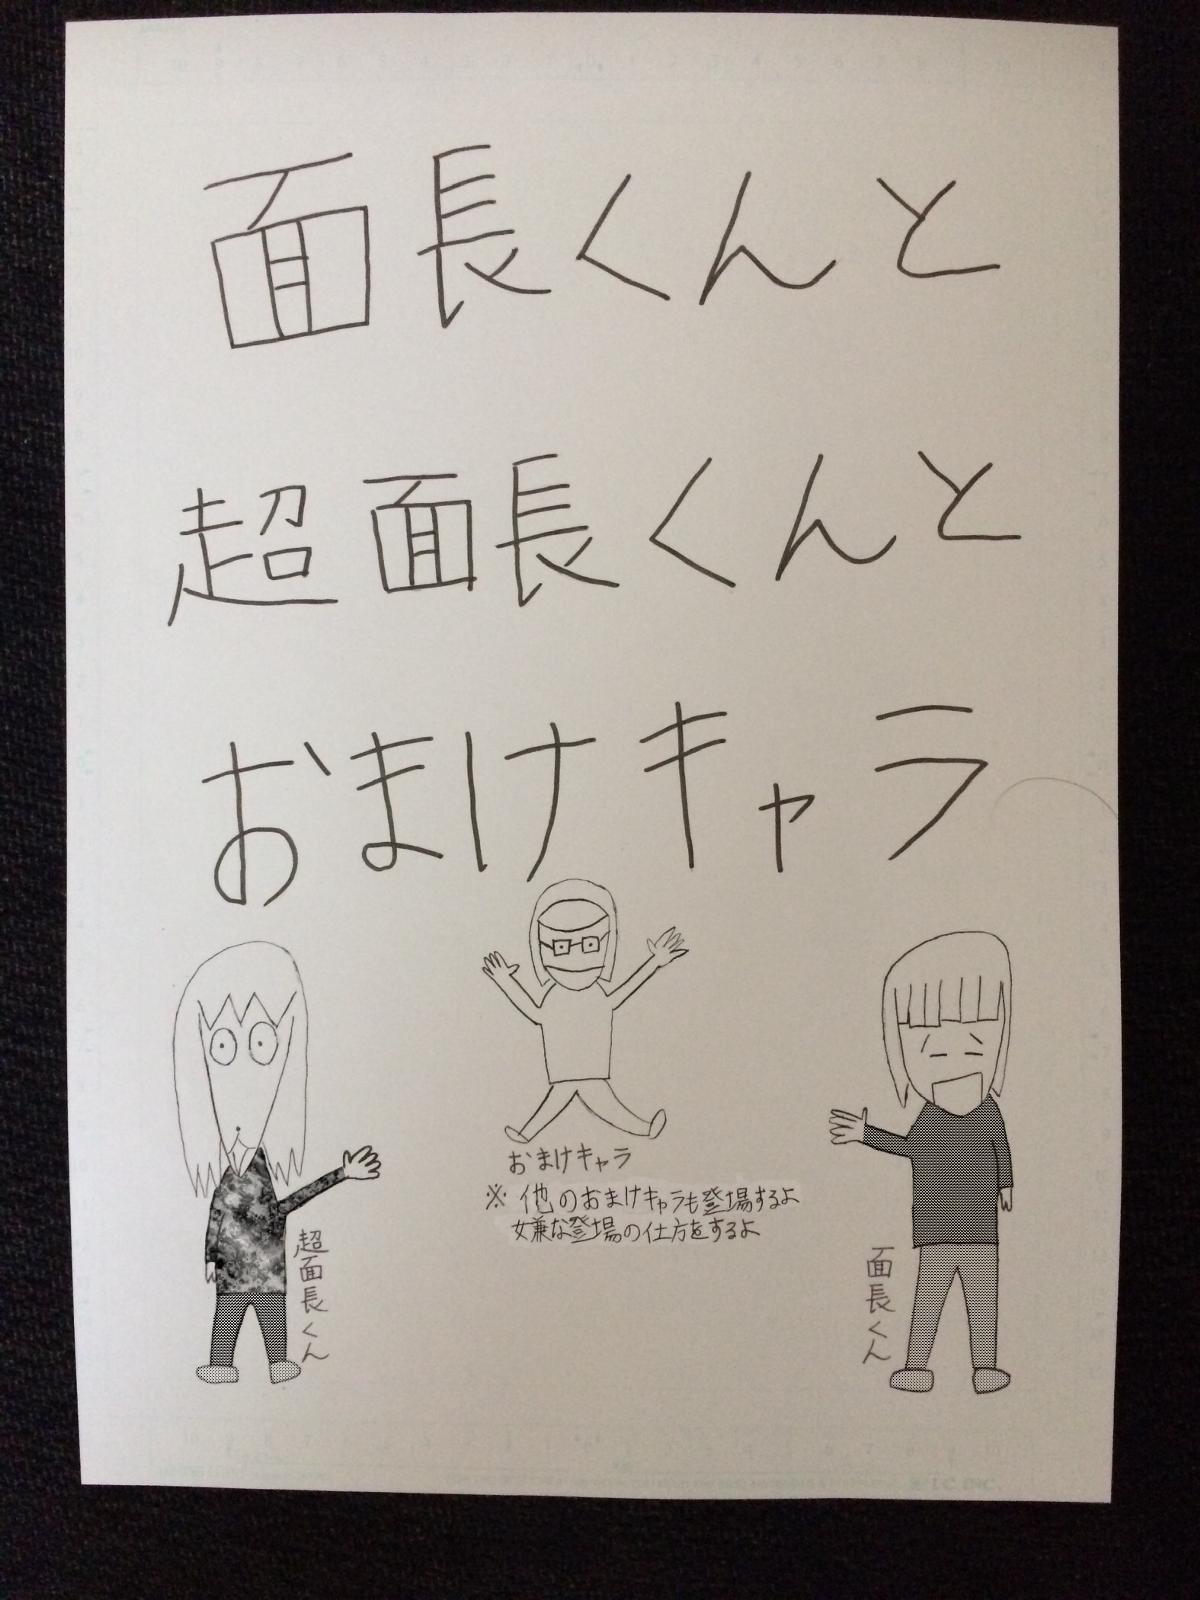 面長くんと
超面長くんと
おまけキャラ
おまけキャラ
※他のおまけキャラも登場するよ
嫌な登場の仕方をするよ
超面長くん
面長くん